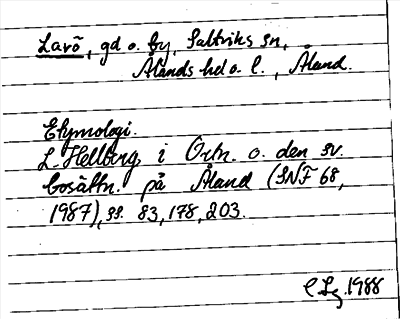 Lavö, gd o. by, Saltviks sn,
Ålands hd o. l., Åland.
Etymologi.
L Hellberg i Ortn. o. den sv.
bosättn. på Åland (SNF 68,
1987), ss. 83, 178, 203.
1988